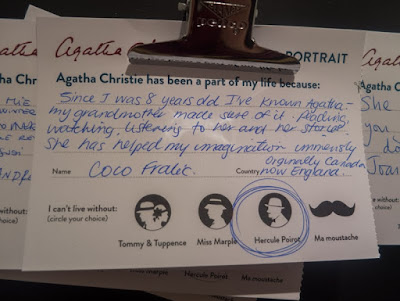 Agatha
PORTRAIT
Agatha Christie has been a part of my life because:
Since I was 8 years old I've known Agatha -
my grandmother made sure of it. Reading,
watching, listening to her and her stories.
She has helped my imagination immensly
Originally Canada
Name Coco Fralic. Country now England.
I can't live without:
(circle your choice)
Tommy & Tuppence
Miss Marple
Hercule Poirot
Ma moustache
Agatha
She
you
do
Joan
Miss Marple
Hercule Poirot
Ma moustache